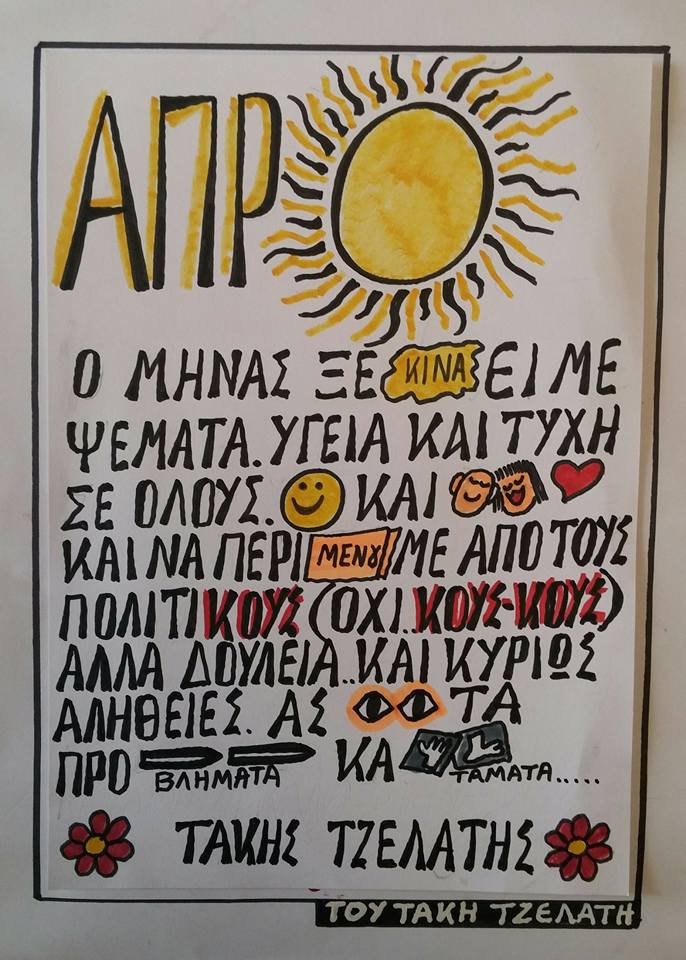 ΑΠΡ
Ο ΜΗΝΑΣ ΞΕΚΙΝΑΕΙ ΜΕ
ΨΕΜΑΤΑ. ΥΓΕΙΑ ΚΑΙ ΤΥΧΗ
ΣΕ ΟΛΟΥΣ. ΚΑΙ
ΚΑΙ ΝΑ ΠΕΡΙΜΕΝΟΥΜΕ ΑΠΟ ΤΟΥΣ
ΠΟΛΙΤΙΚΟΥΣ (ΟΧΙ..ΚΟΥΣ-ΚΟΥΣ)
ΑΛΛΑ ΔΟΥΛΕΙΑ..ΚΑΙ ΚΥΡΙΩΣ
ΑΛΗΘΕΙΕΣ. ΑΣ ΤΑ
ΠΡΟ ΒΛΗΜΑΤΑ ΚΑ ΤΑΜΑΤΑ.....
ΤΑΚΗΣ ΤΖΕΛΑΤΗΣ
ΤΟΥ ΤΑΚΗ ΤΖΕΛΑΤΗ